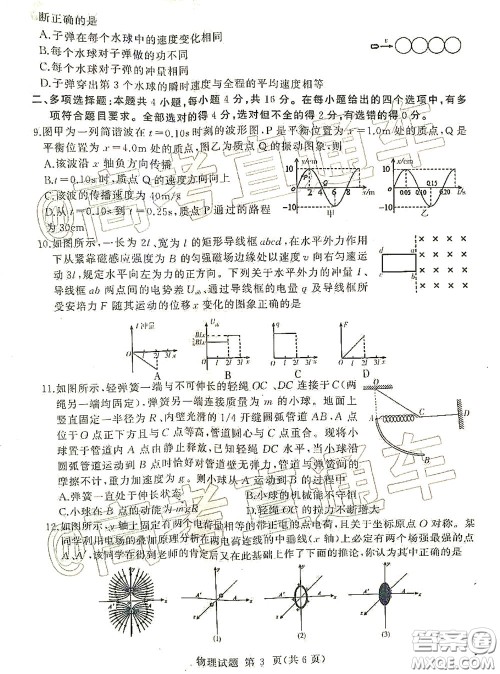 断正确的是
A.子弹在每个水球中的速度变化相同
B.每个水球对子弹做的功不同
C.每个水球对子弹的冲量相同
D.子弹穿出第3个水球的瞬时速度与全程的平均速度相等
二、多项选择题:本题共4小题,每小题4分,共16分。在每小题给出的四个选项中,有多
项符合题目要求。全部选对的得4分,选对但不全的得2分,有选错的得0分。
9.图甲为一列简谐波在t=0.10s时刻的波形图,P是平衡位置为x=1.0m处的质点,Q是
平衡位置为x=4.0m处的质点,图乙为质点Q的振动图象,则
A.该波沿x轴负方向传播
B.t=0.10s时,质点Q的速度方向向上
C.该波的传播速度为40m/s
D.从t=0.10s到t=0.25s,质点P通过的路程
为30cm
10.如图所示,一长为2l、宽为l的矩形导线框abcd,在水平外力作用
下从紧靠磁感应强度为B的匀强磁场边缘处以速度v向右匀速运
动3l,规定水平向左为力的正方向。下列关于水平外力的冲量I、
导线框ab两点间的电势差Uab、通过导线框的电量q及导线框所
受安培力F随其运动的位移x变化的图象正确的是
A B C D
11.如图所示,轻弹簧一端与不可伸长的轻绳OC、DC连接于C(两
绳另一端均固定),弹簧另一端连接质量为m的小球。地面上竖
直固定一半径为R、内壁光滑的1/4开缝圆弧管道AB,A点位
于O点正下方且与C点等高,管道圆心与C点重合。现将小球
置于管道内A点由静止释放,已知轻绳DC水平,当小球沿
圆弧管道运动到B点时恰好对管道壁无弹力,管道与弹簧间的
摩擦不计,重力加速度为g,则小球从A运动到B的过程中
A.弹簧一直处于伸长状态 B.小球的机械能不守恒
12.如图所示,y轴上固定有两个电荷量相等的带正电的点电荷,且关于坐标原点O对称。某
同学利用电场的叠加原理分析在两电荷连线的中垂线(x轴)上必定有两个场强最强的点
A、A′,该同学在得到老师的肯定后又在此基础上作了下面的推论,你认为其中正确的是
物理试题 第 3 页(共6页)
高考直通车
答案圈